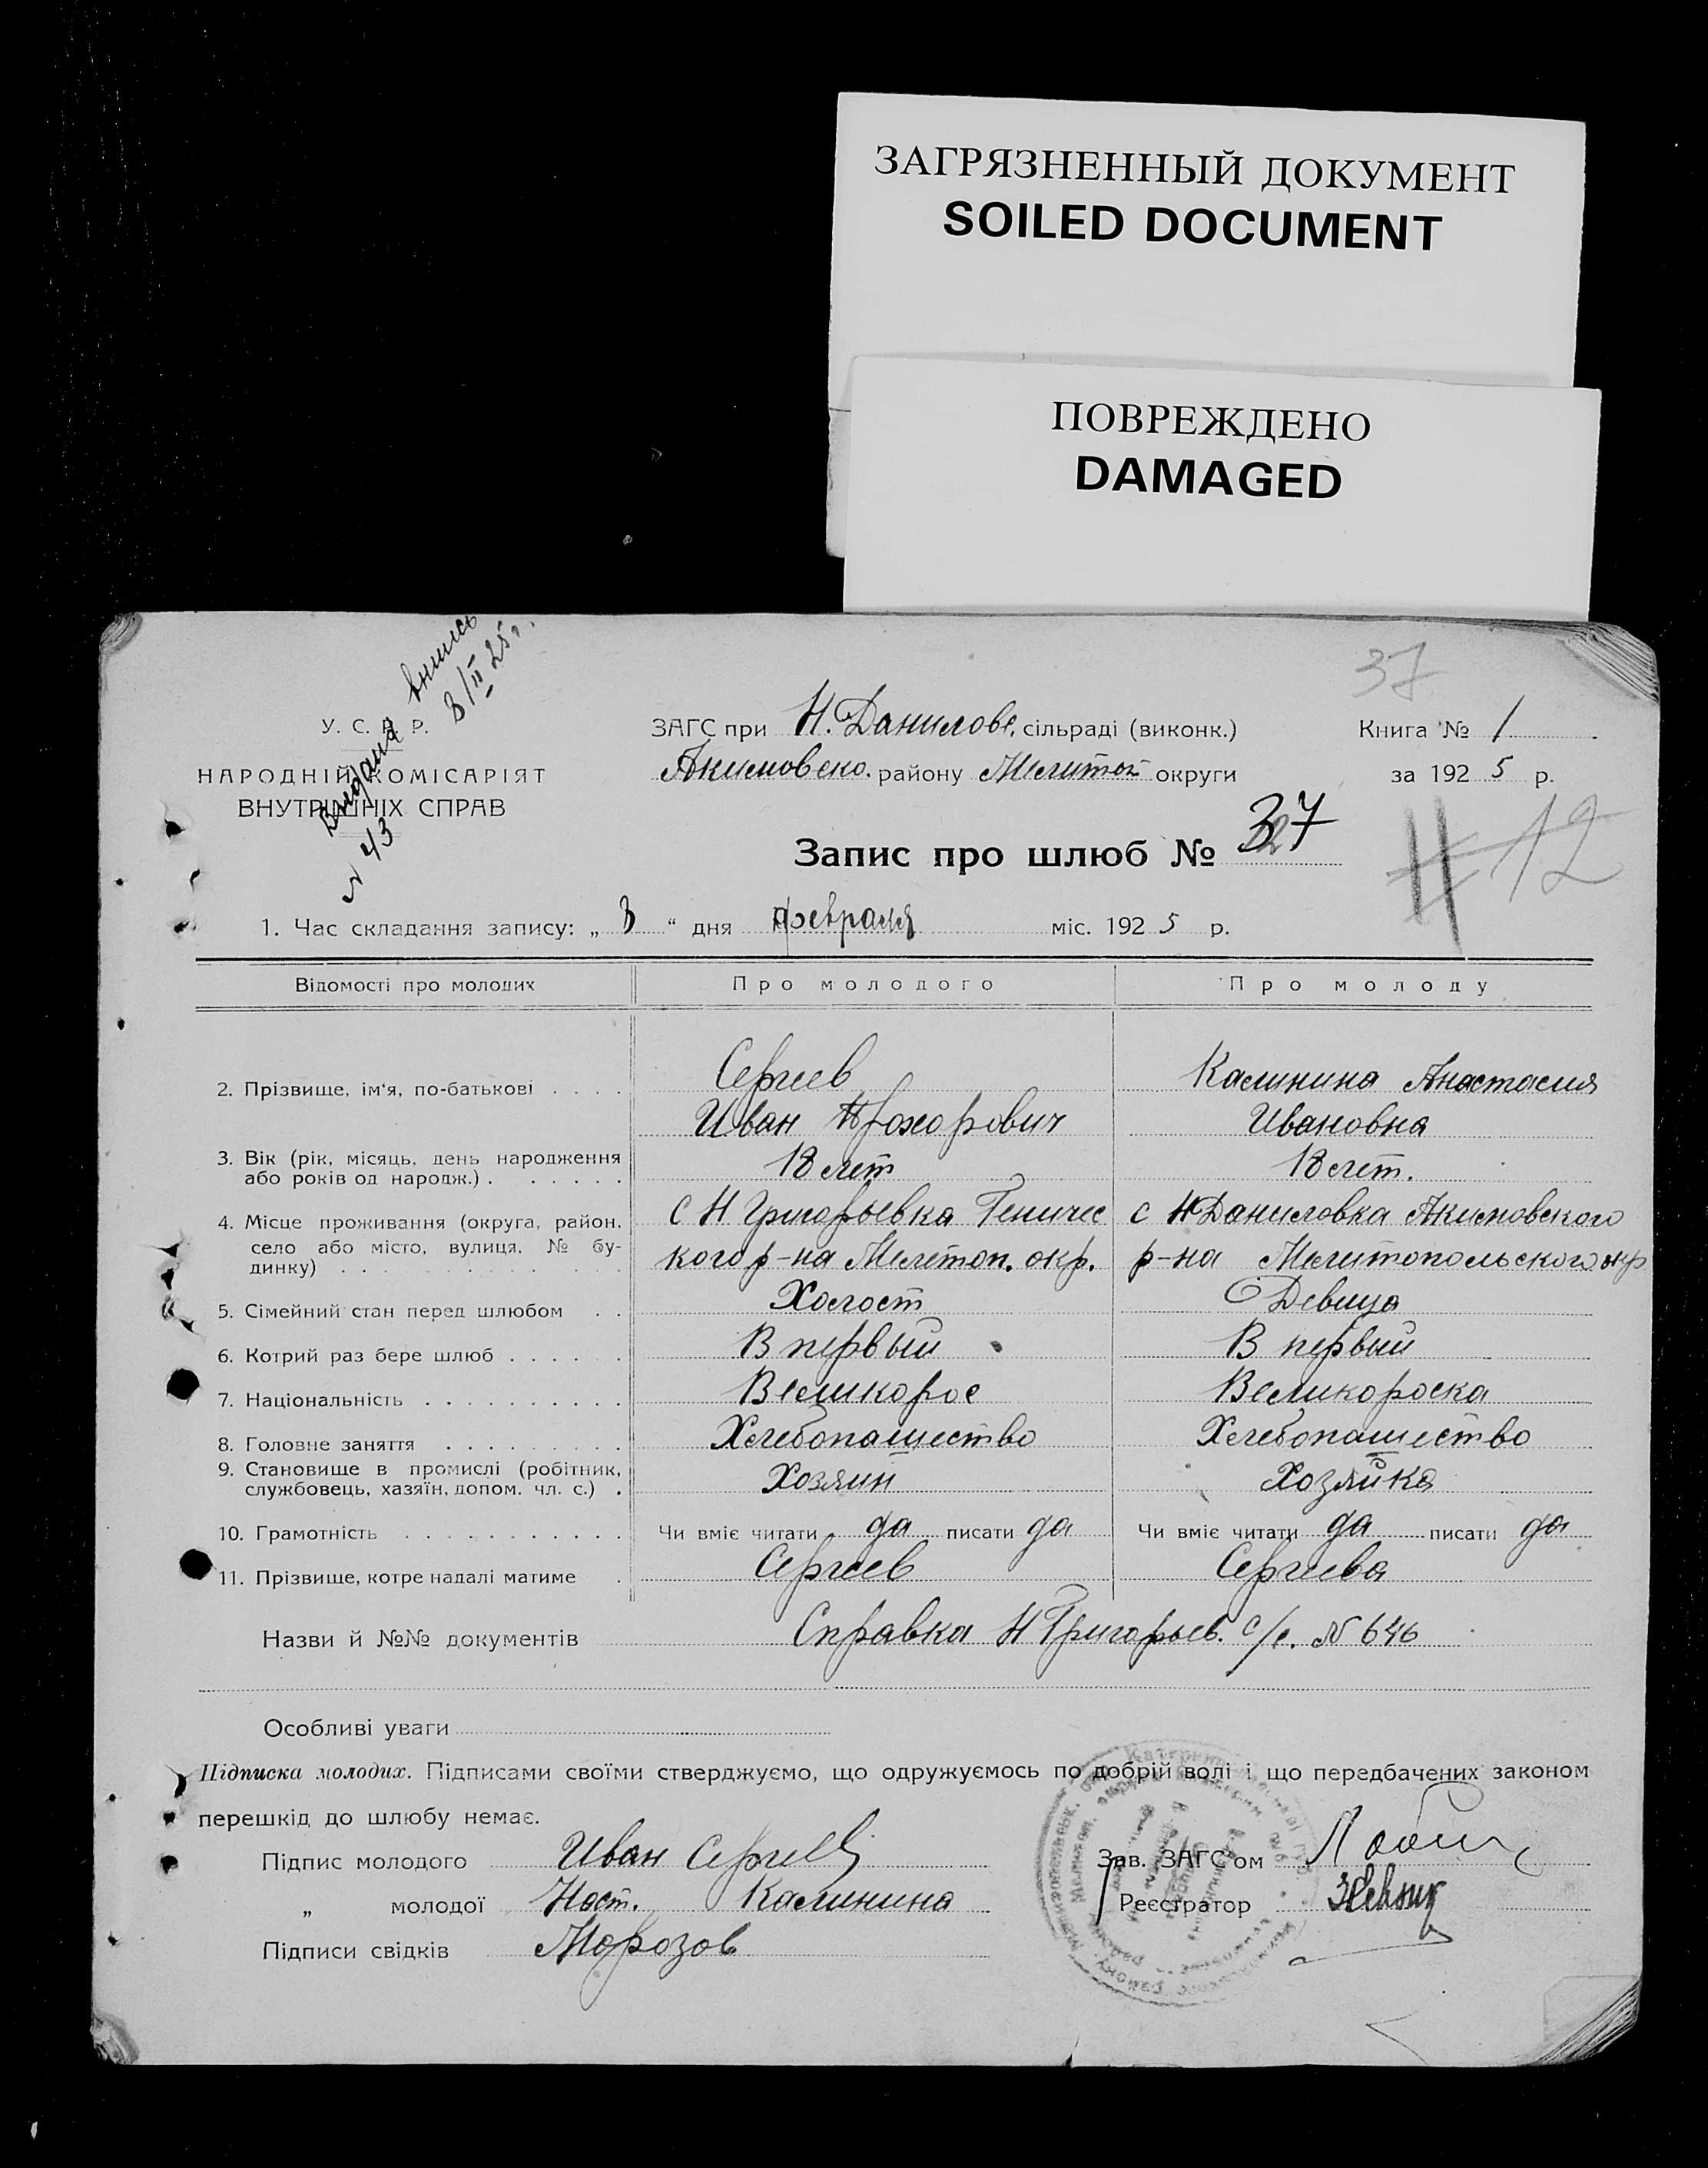 ЗАГРЯЗНЕННЫЙ ДОКУМЕНТ
SOILED DOCUMENT
ПОВРЕЖДЕНО
DAMAGED
37
Видана впись
8/II 25 г.
N 43
У. С. Р. Р.
НАРОДНІЙ КОМІСАРІЯТ
ВНУТРІШНІХ СПРАВ
ЗАГС при Н. Данилове, сільраді (виконк.)
Акимовско. району Мелитоп округи
Книга № 1
за 1925 р.
Запис про шлюб № 37
# 12
1. Час складання запису: „ 8 “ дня февраля міс. 1925 р.
Відомості про молодих Про молодого Про молоду
2. Прізвище, ім'я, по-батькові . . . . Сергеев Калинина Анастасия
Иван Прохорович Ивановна
3. Вік (рік, місяць, день народження 18 лет 18 лет.
або років од народж.) . . . . . .
4. Місце проживання (округа, район, с Н Григорьевка Геничес с Н Даниловка Акимовского
село або місто, вулиця, № бу- кого р-на Мелетоп. окр. р-на Мелитопольского окр
динку) . . . . . . . . . . .
5. Сімейний стан перед шлюбом . . Холост Девица
6. Котрий раз бере шлюб . . . . . В первый В первый
7. Національність . . . . . . . . . Великорос Великороска
8. Головне заняття . . . . . . . . Хлебопашество Хлебопашество
9. Становище в промислі (робітник, Хозяин Хозяйка
службовець, хазяїн, допом. чл. с.) .
10. Грамотність . . . . . . . . . . Чи вміє читати да писати да Чи вміє читати да писати да
11. Прізвище, котре надалі матиме . Сергеев Сергеева
Назви й №№ документів Справка Н Григорьев. с/с. N 646
Особливі уваги
Підписка молодих. Підписами своїми стверджуємо, що одружуємось по добрій волі і що передбачених законом
перешкід до шлюбу немає.
Підпис молодого Иван Сергеев
Зав. ЗАГС'ом
„ молодої Наст. Калинина
Реєстратор
Підписи свідків Морозов